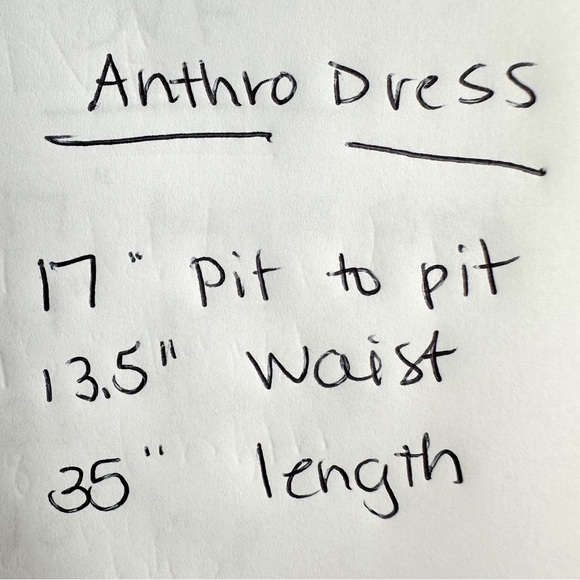 Anthro Dress
17" pit to pit
13.5" waist
35" length